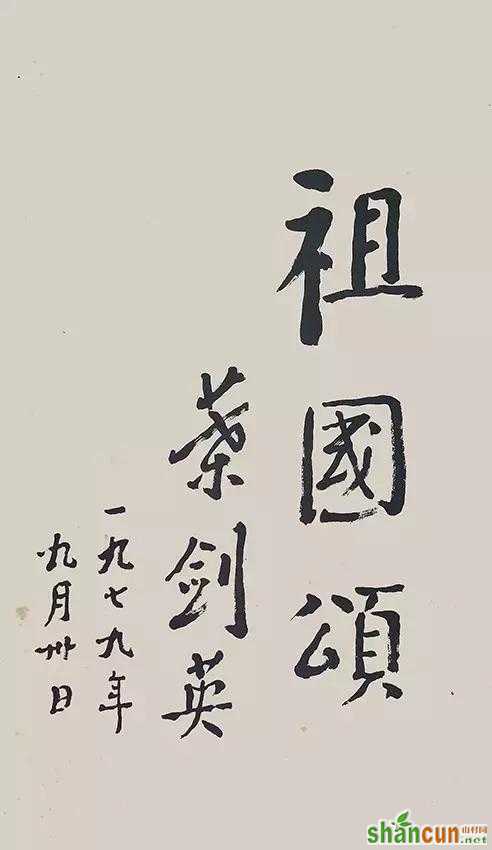 祖國頌
葉剑英
一九七九年
九月卅日
shancun
山村网
.net